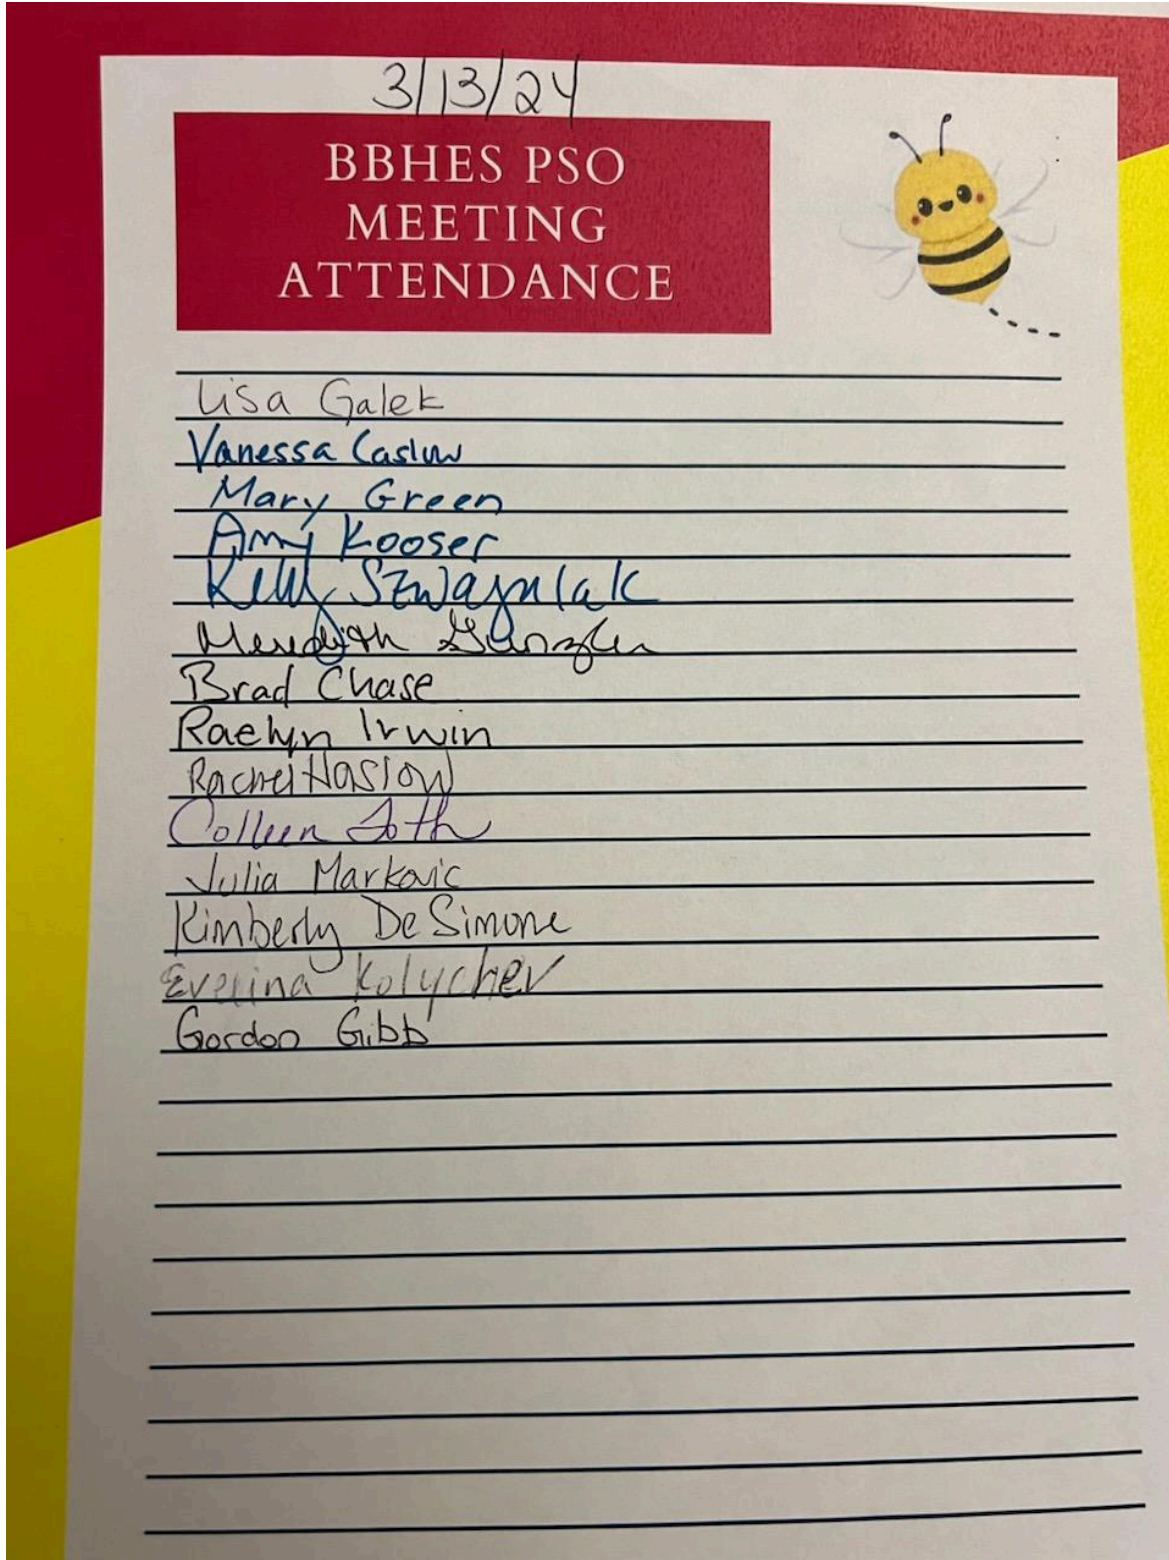 3/13/24
BBHES PSO
MEETING
ATTENDANCE
Lisa Galek
Vanessa Caslow
Mary Green
Amy Kooser
Kelly Szwagulak
Meredith
Brad Chase
Raelyn Irwin
Rachel Haslow
Colleen Toth
Julia Markovic
Kimberly DeSimone
Evelina Kolychev
Gordon Gibb